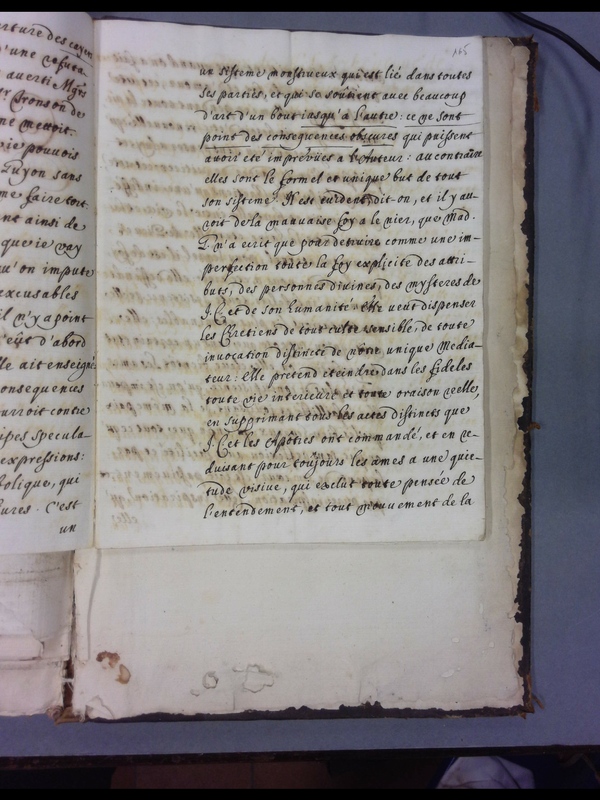 erture des
d'une refuta
averti Mgrs
Tronson de
ne mecroit.
ie pouvois
Guyon sans
me faire tort.
nt ainsi de
que ie vay
qu'on impute
excusables
il n'y a point
d'abord
lle ait enseigné
onsequences
ourroit contre
ipes specula-
expressions:
tolique, qui
ures. C'est
un
165
un sisteme monstrueux qui est lié dans toutes
ses parties, et qui se soutient avec beaucoup
d'art d'un bout iusqu'a l'autre: ce ne sont
point des consequences obscures qui puissent
avoir eté imprevües a l'Auteur: au contraire
elles sont le formel et unique but de tout
son sisteme. Il est evident, dit-on, et il y au-
roit de la mauvaise foy a le nier, que Mad.
G. n'a ecrit que pour detruire comme une im-
perfection toute la foy explicite des attri-
buts, des personnes divines, des mysteres de
J.C. et de son humanité. Elle veut dispenser
les Chretiens de tout culte sensible, de toute
invocation distincte de nôtre unique Media-
teur: Elle pretend eteindre dans les fideles
toute vie interieure et toute oraison reelle,
en supprimant tous les actes distincts que
J.C. et les Apôtres ont commandé, et en re-
duisant pour toujours les ames a une quie-
tude oisive, qui exclut toute pensée de
l'entendement, et tout mouvement de la